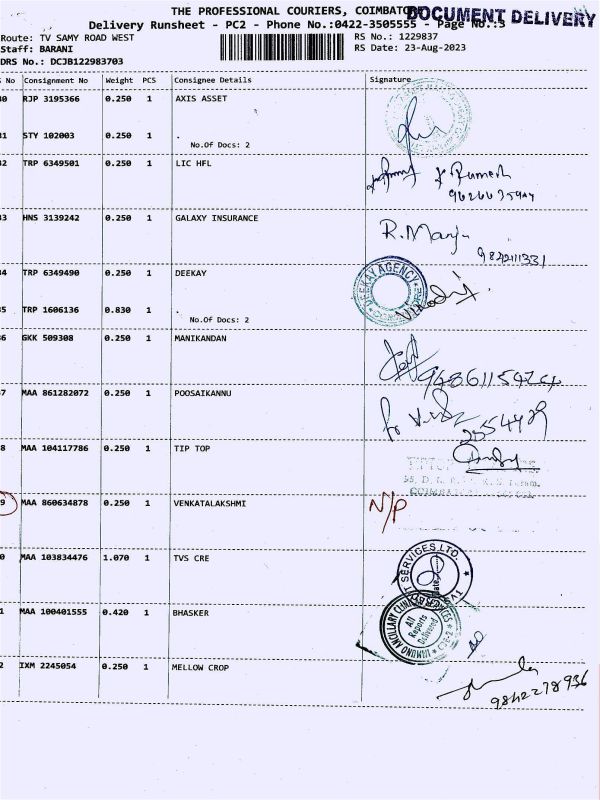 THE PROFESSIONAL COURIERS, COIMBATO
DOCUMENT DELIVERY
Delivery Runsheet - PC2 - Phone No.:0422-3505555 - Page No.:5
Route: TV SAMY ROAD WEST
RS No.: 1229837
Staff: BARANI
RS Date: 23-Aug-2023
DRS No.: DCJB122983703
S No Consignment No Weight PCS Consignee Details Signature
30 RJP 3195366 0.250 1 AXIS ASSET
31 STY 102003 0.250 1 .
No.Of Docs: 2
32 TRP 6349501 0.250 1 LIC HFL
Ramesh
33 HNS 3139242 0.250 1 GALAXY INSURANCE
R. Manju
9842111331
34 TRP 6349490 0.250 1 DEEKAY
DEEKAY AGENCY
35 TRP 1606136 0.830 1 .
No.Of Docs: 2
36 GKK 509308 0.250 1 MANIKANDAN
37 MAA 861282072 0.250 1 POOSAIKANNU
2554429
38 MAA 104117786 0.250 1 TIP TOP
39 MAA 860634878 0.250 1 VENKATALAKSHMI
N/P
40 MAA 103834476 1.070 1 TVS CRE
SERVICES LTD.
41 MAA 100401555 0.420 1 BHASKER
All
Reports
Delivered
42 IXM 2245054 0.250 1 MELLOW CROP
9842278936